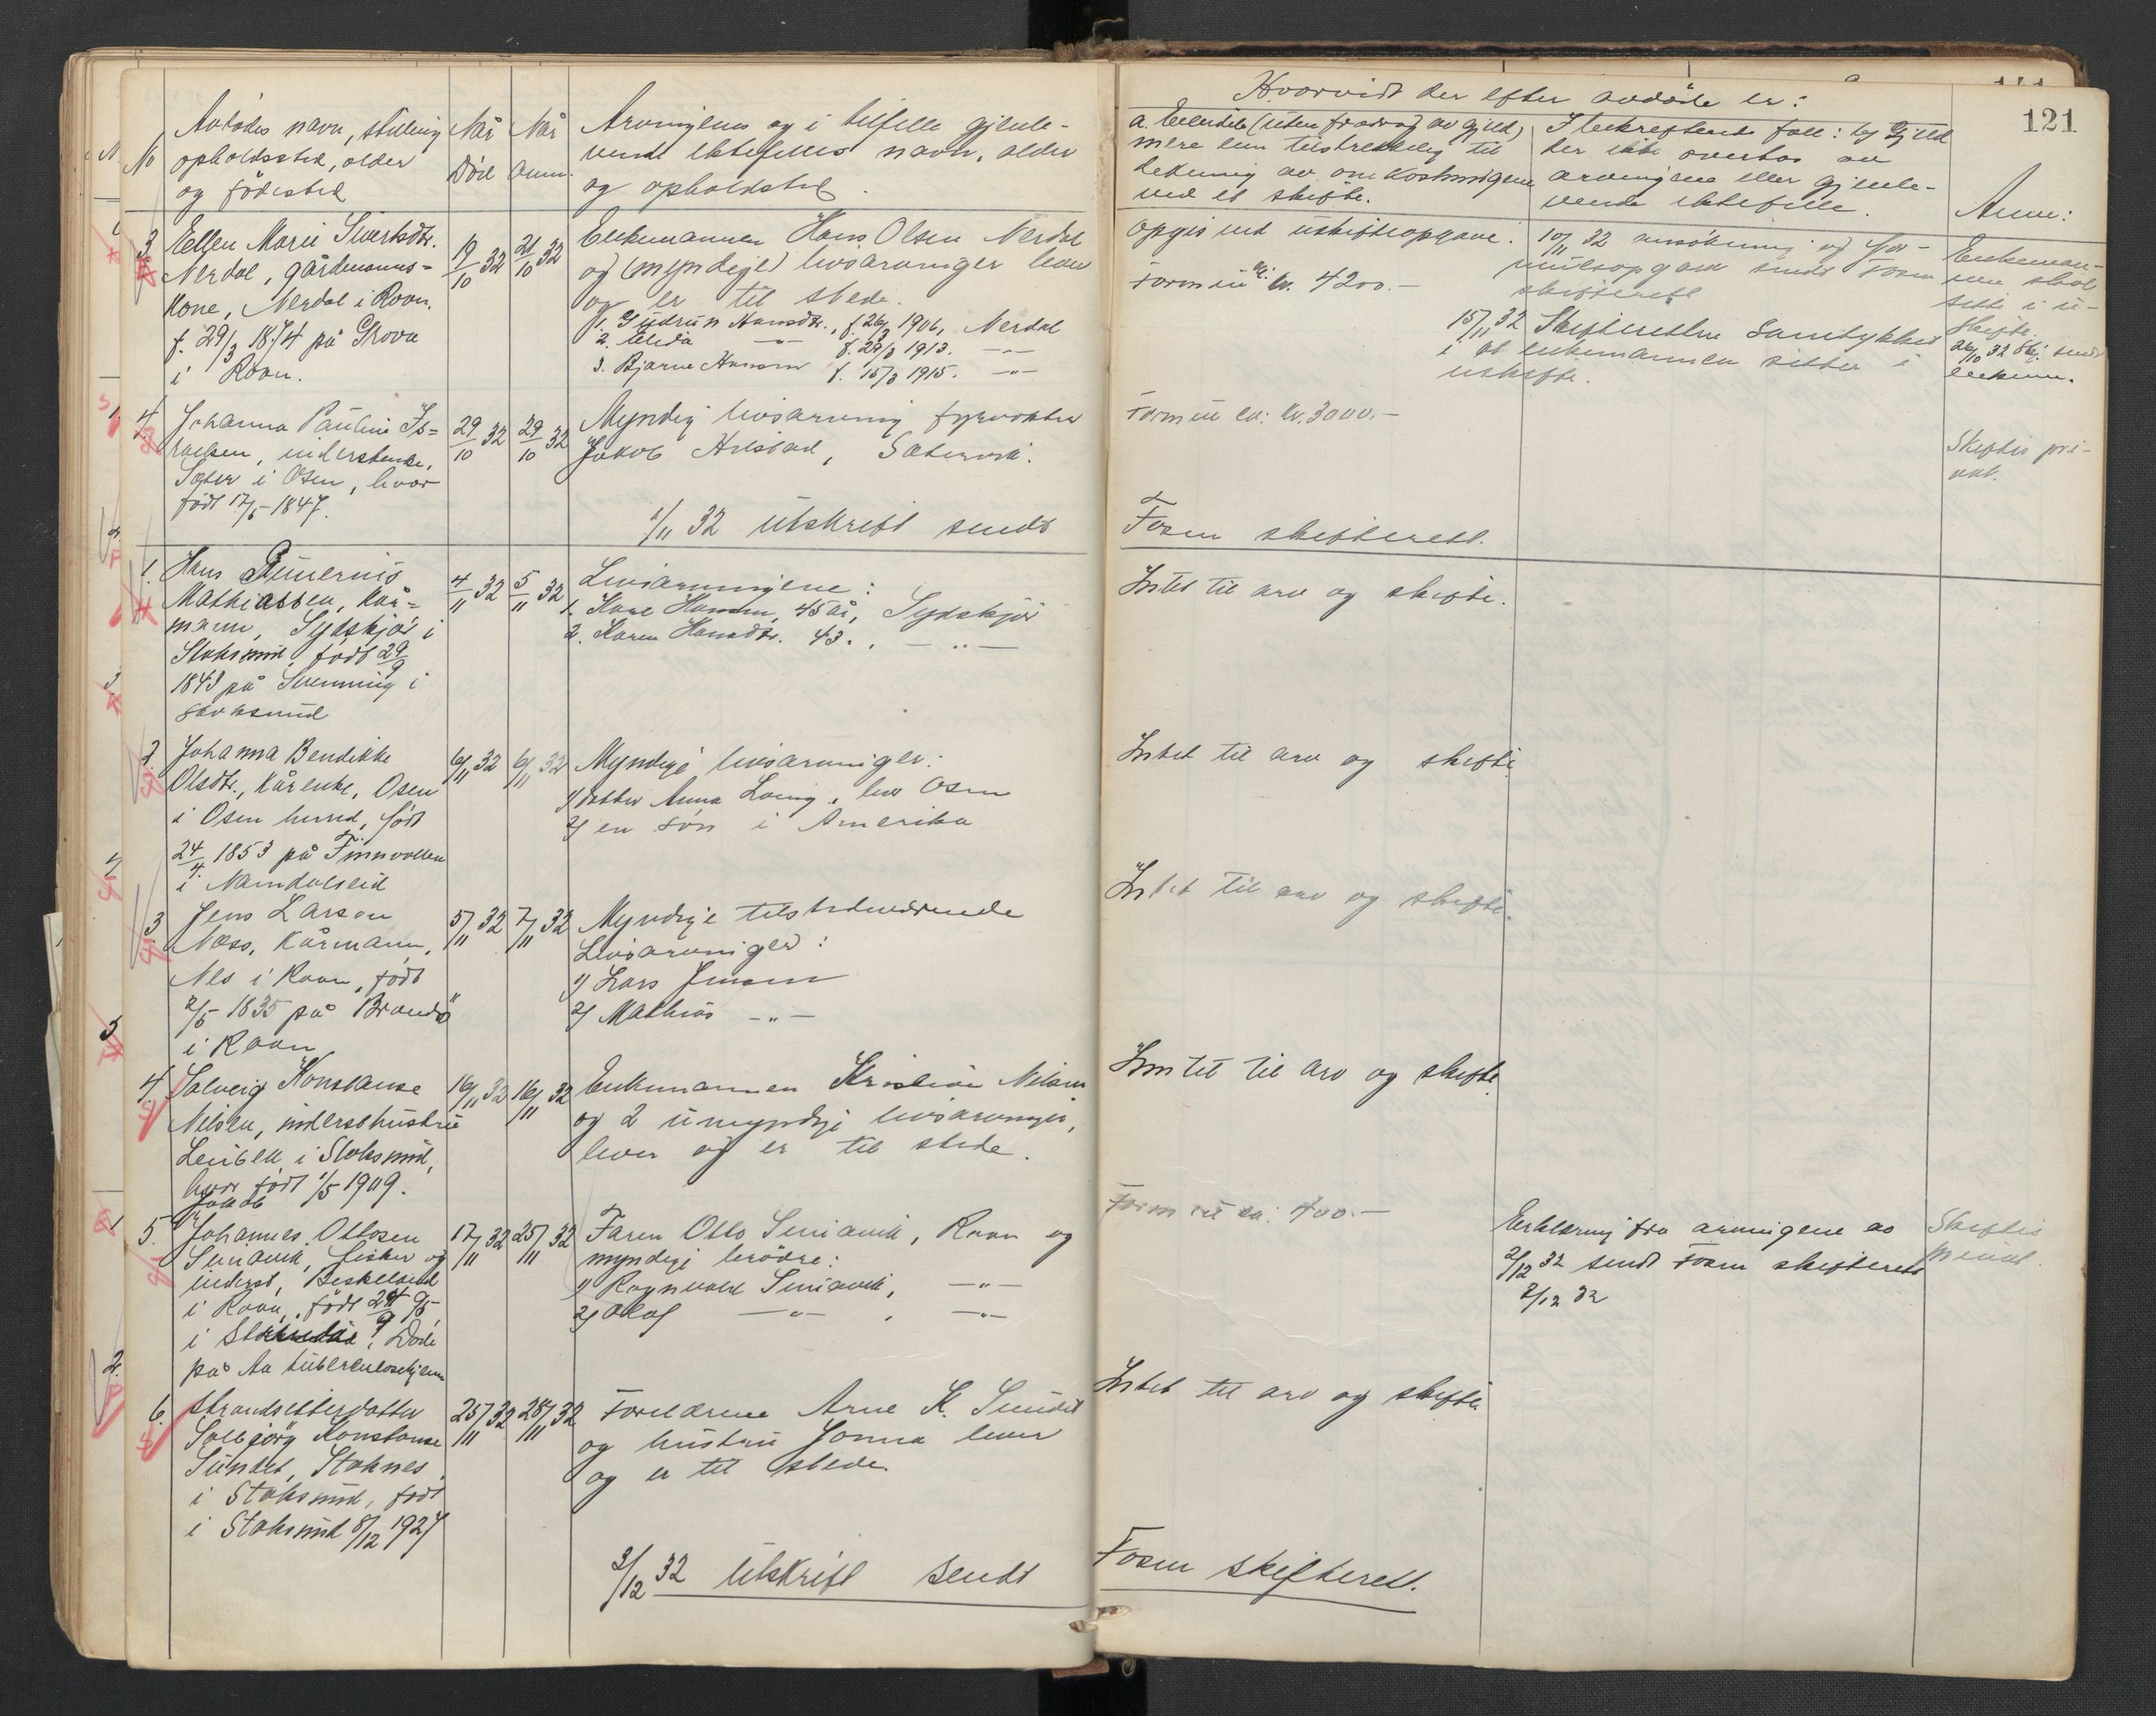 No
Avdødes navn, stilling
opholdssted, alder
og fødested
Når
Død
Når
Anm.
Arvingenes og i tilfelle gjenle-
vende ektefelles navn, alder
og opholdsted.
3.
Ellen Marie Sivertsdtr.
Nerdal, gårdmanns-
kone, Nerdal i Roan.
f. 29/3 1874 på Grova
i Roan.
19/10 32
21/10 32
Enkemannen Hans Olsen Nerdal
og (myndige) livsarvinger lever
og er til stede.
1. Gudrun Hansdtr., f. 26/3 1906, Nerdal
2. Alida -"- f. 29/3 1913. -"-
3. Bjarne Hansen f. 15/3 1915. -"-
4.
Johanna Pauline Is-
raelsen, inderstenke,
Sæter i Osen, hvor
født 17/5-1847.
29/10 32
29/10 32
Myndig livsarving fyrvokter
Jakob Hilstad, Sætervik.
1/11 32 utskrift sendt
1.
Hans
Mathiassen, kår-
mann, Sydskjør i
Stoksund, født 29/9
1843 på Svenning i
Stoksund
4/11 32
5/11 32
Livsarvingene:
1. Kare Hansen, 45 år, Sydskjør
2. Karen Hansdtr. 43. , -"-
2.
Johanna Bendikke
Olsdtr., kårenke, Osen
i Osen herred, født
24/4 1853 på Finnvollen
i Namdalseid
6/11 32
6/11 32
Myndige livsarvinger:
1/ datter Anna Loeng, her Osen
2/ en søn i Amerika
3
Jens Larsen
Næss, kårmann,
Nes i Roan, født
2/5 1835 på Brandsø
i Roan
5/11 32
7/11 32
Myndige tilstedeværende
Livsarvinger:
1/ Lars Jensen
2/ Mathias -"-
4.
Solveig Konstanse
Nilsen, inderstshustru
i Stoksund,
hvor født 1/5 1909.
16/11 32
16/11 32
Enkemannen Kristian Nilsen
og 2 umyndige livsarvinger,
lever og er til stede.
5.
Jakob
Johannes Ottosen
Sumavik, fisker og
inderst, Beskeland
i Roan, født 24/9 95
i
? Døde
på Aa tuberculosehjem
17/11 32
25/11 32
Faren Otto Sumavik, Roan og
myndige brødre:
1/ Ragnvald Sumavik, -"-
2/ Olaf -"- , -"-
6.
Strandsitterdatter
Solbjørg Konstanse
Sundet, Stoknes
i Stoksund, født
i Stoksund 8/12 1927
25/11 32
28/11 32
Foreldrene Arne K. Sundet
og hustru Jonna lever
og er til stede.
3/12 32 utskrift sendt
121
Hvorvidt der efter avdøde er:
a. Eiendele (uten fradrag av gjeld)
mere enn tilstrekkelig til
dekning av omkostningene
ved et skifte.
I bekreftende fall: b/ Gjeld
der ikke overtas av
arvingene eller gjenle-
vende ektefelle.
Anm:
Opgis ved uskifteopgave.
Formue ca. kr. 4200.-
10/11 32 ansøkning og for-
muesopgave sendt Fosen
skifterett
15/11 32 Skifteretten samtykket
i at enkemannen sitter i
uskifte.
Enkeman-
nen skal
sitte i u-
skifte.
26/10 32 Skj. sendt
enkem.
Formue ca: kr. 3000.-
Skiftes pri-
vat.
Fosen skifterett.
Intet til arv og skifte.
Intet til arv og skifte
Intet til arv og skifte.
Intet til arv og skifte.
Formue ca: 400.-
Erklæring fra arvingene av
2/12 32 sendt Fosen skifterett
2/12 32
Skiftes
privat.
Intet til arv og skifte
Fosen skifterett.